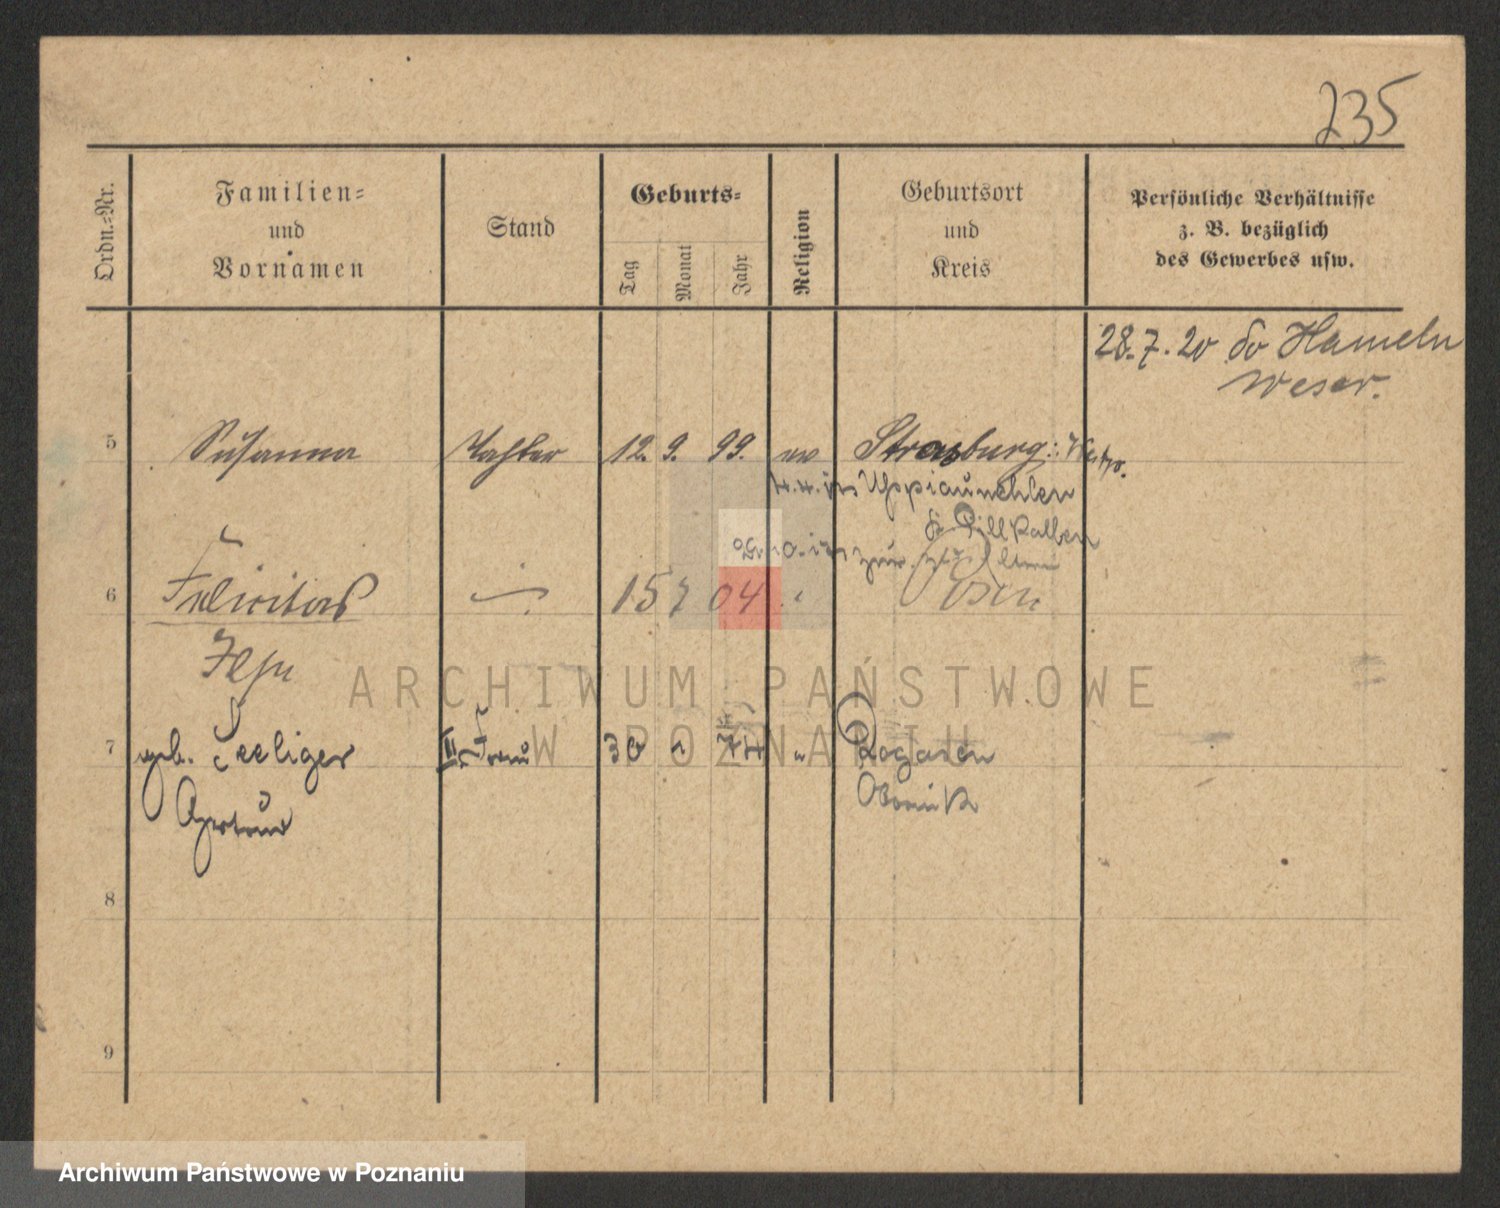 235
Ordn.-Nr.
Familien-
und
Vornamen
Stand
Geburts-
Tag
Monat
Jahr
Religion
Geburtsort
und
Kreis
Persönliche Verhältnisse
z. B. bezüglich
des Gewerbes usw.
28.7.20 do Hameln
Weser.
5 Susanna Tochter 12. 9. 99. ev Strasburg: Westpr.
Uszpiaunehlen
Pillkallen
6 Felicitas 15 7 04 Posen
7 geb. Seeliger III Frau 30 74 " Rogasen
Gertrud Obornik
8
9
ARCHIWUM PAŃSTWOWE
W POZNANIU
Archiwum Państwowe w Poznaniu